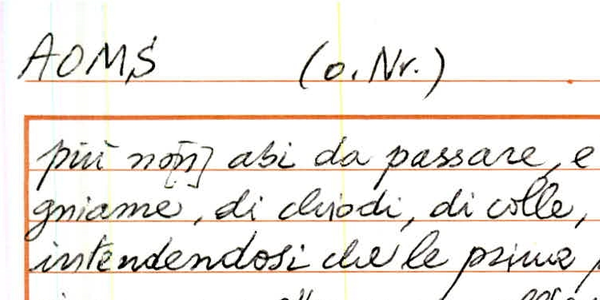 AOMS (o. Nr.)
più no[n] abi da passare, e
gniame, di chiodi, di colle,
intendendosi che le prime